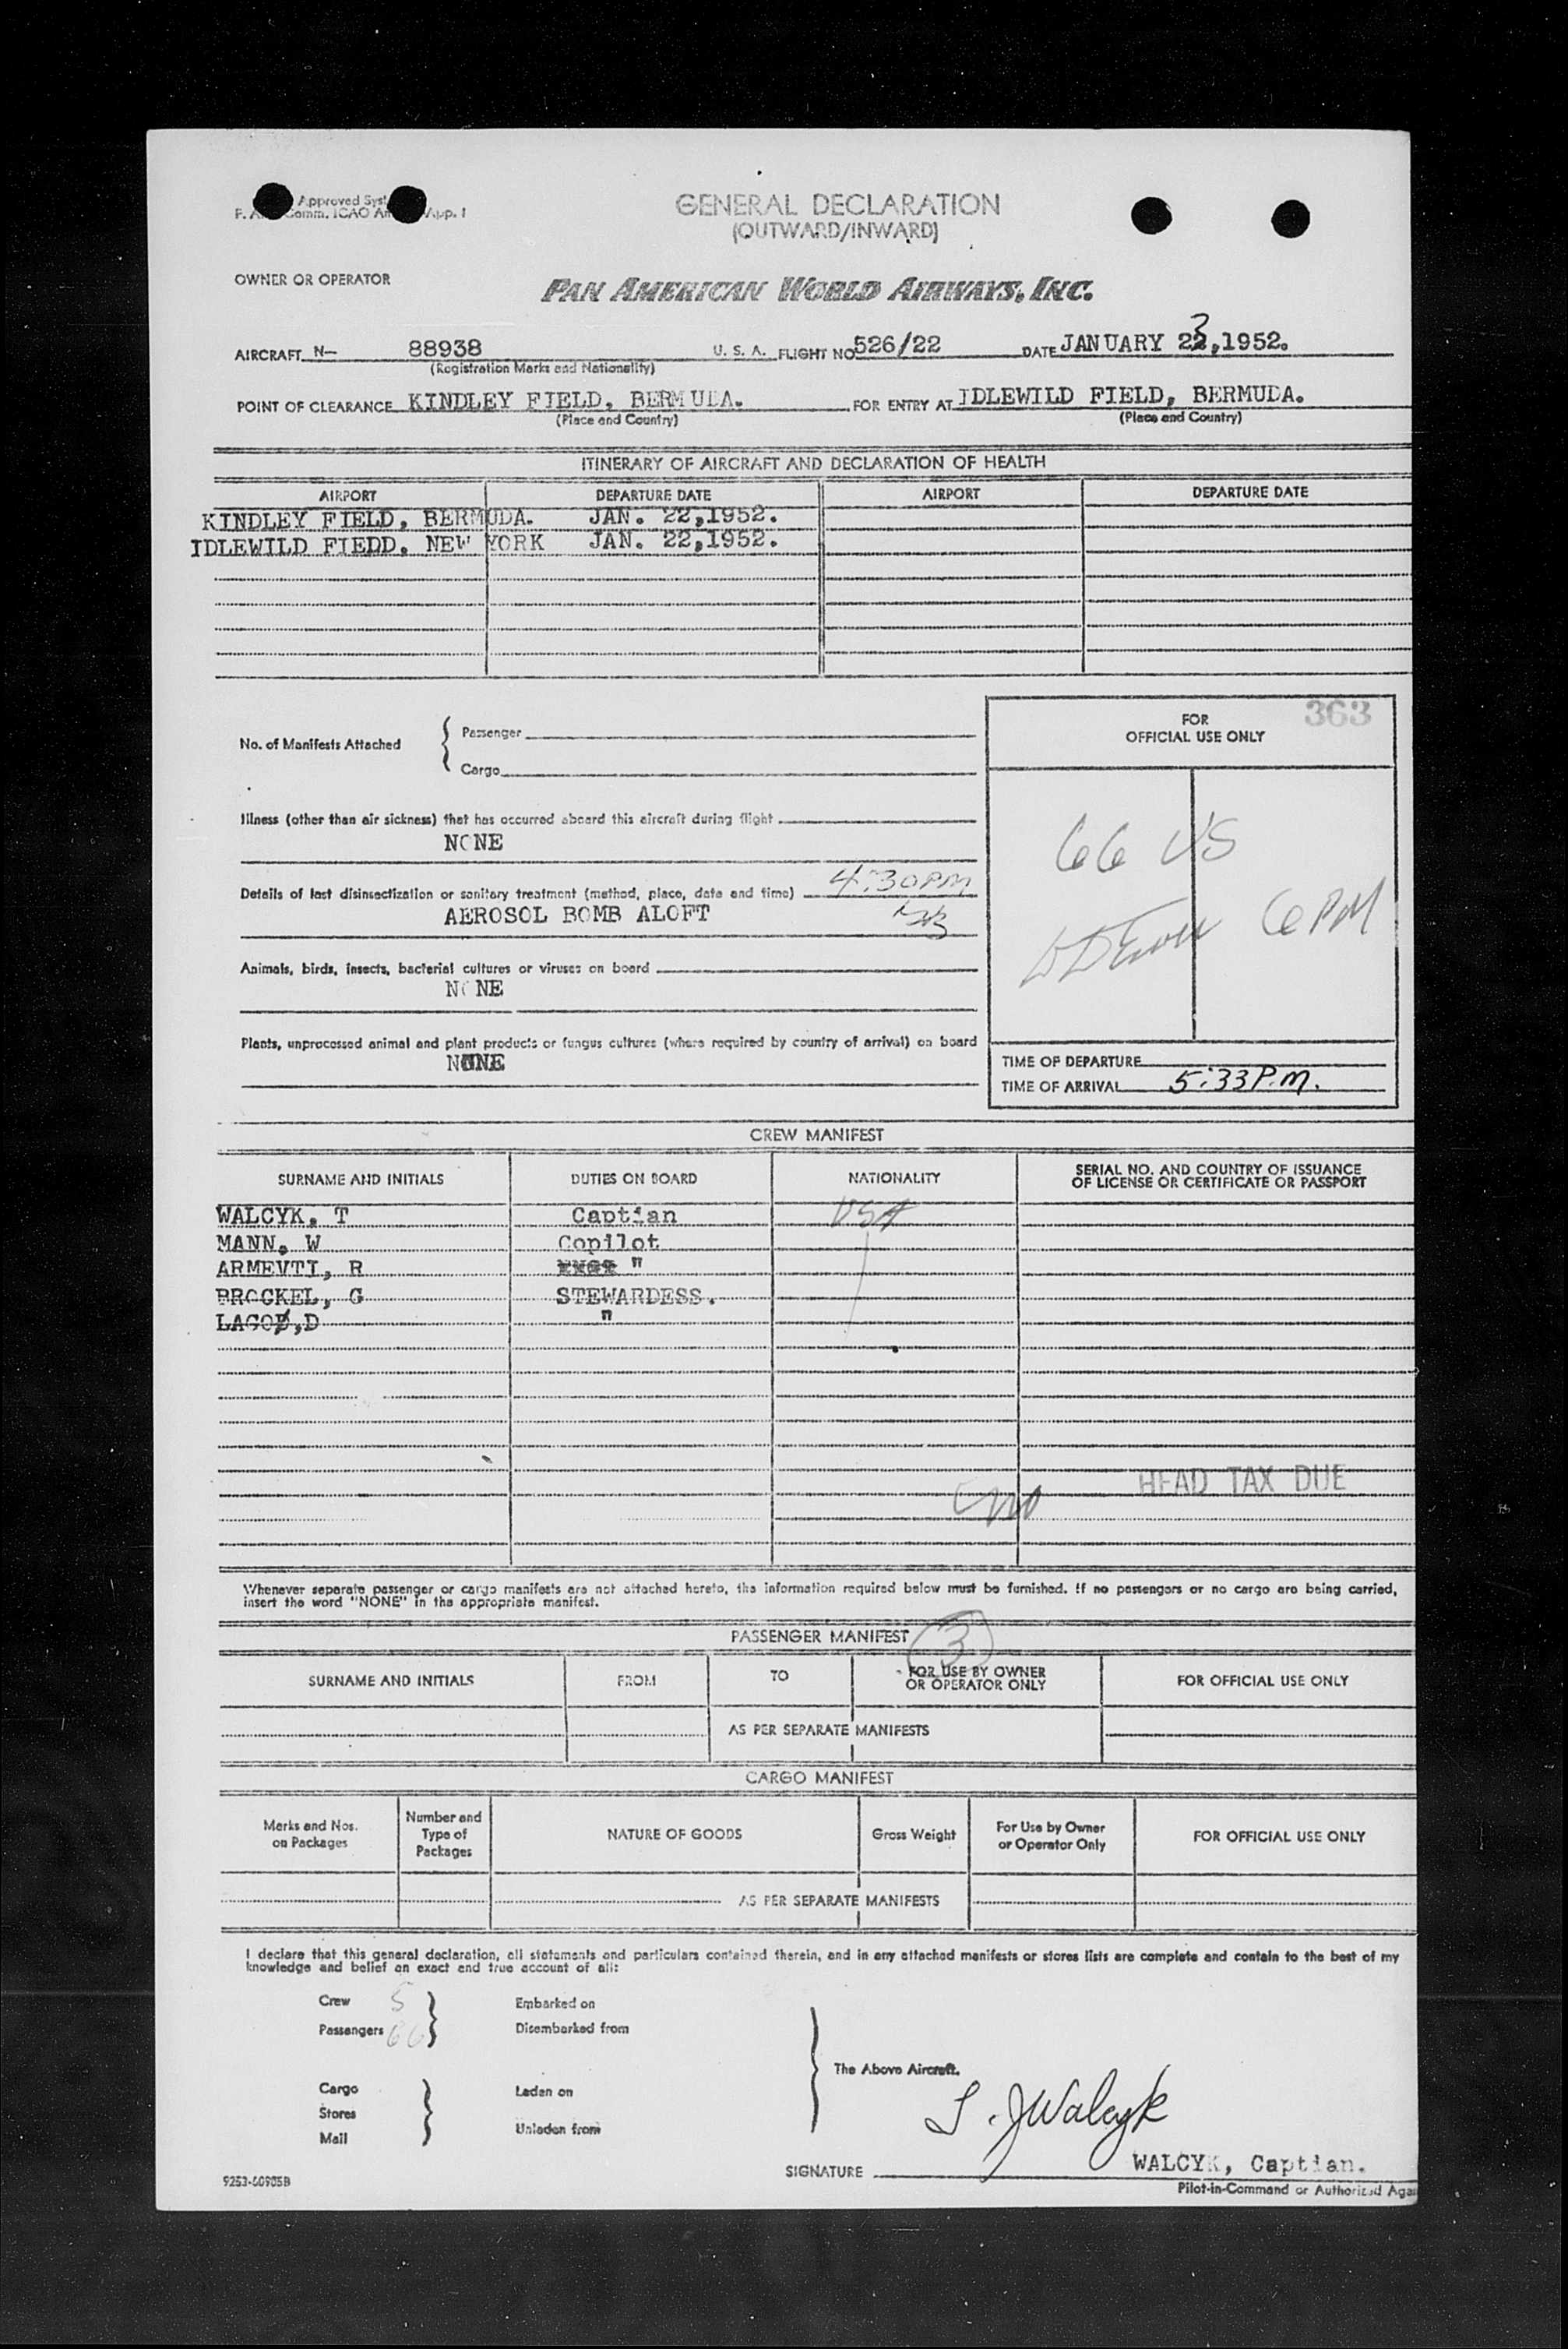 Approved Syst
F. A. Comm. ICAO An App. 1
GENERAL DECLARATION
(OUTWARD/INWARD)
OWNER OR OPERATOR
PAN AMERICAN WORLD AIRWAYS, INC.
AIRCRAFT N- 88938 U. S. A. FLIGHT NO 526/22 DATE JANUARY 23,1952.
(Registration Marks and Nationality)
POINT OF CLEARANCE KINDLEY FIELD, BERMUDA. FOR ENTRY AT IDLEWILD FIELD, BERMUDA.
(Place and Country) (Place and Country)
ITINERARY OF AIRCRAFT AND DECLARATION OF HEALTH
AIRPORT DEPARTURE DATE AIRPORT DEPARTURE DATE
KINDLEY FIELD, BERMUDA. JAN. 22,1952.
IDLEWILD FIEDD. NEW YORK JAN. 22,1952.
No. of Manifests Attached
Passenger
Cargo
FOR 363
OFFICIAL USE ONLY
Illness (other than air sickness) that has occurred aboard this aircraft during flight
NONE
66 US
Details of last disinsectization or sanitary treatment (method, place, date and time) 4:30PM
AEROSOL BOMB ALOFT
6PM
Animals, birds, insects, bacterial cultures or viruses on board
NONE
Plants, unprocessed animal and plant products or fungus cultures (where required by country of arrival) on board
NONE
TIME OF DEPARTURE
TIME OF ARRIVAL 5:33P.M.
CREW MANIFEST
SURNAME AND INITIALS DUTIES ON BOARD NATIONALITY SERIAL NO. AND COUNTRY OF ISSUANCE
OF LICENSE OR CERTIFICATE OR PASSPORT
WALCYK, T Captian USA
MANN, W Copilot
ARMEVTI, R "
BROCKEL, G STEWARDESS.
LAGO,D "
HEAD TAX DUE
Whenever separate passenger or cargo manifests are not attached hereto, the information required below must be furnished. If no passengers or no cargo are being carried,
insert the word "NONE" in the appropriate manifest.
PASSENGER MANIFEST 3
SURNAME AND INITIALS FROM TO FOR USE BY OWNER
OR OPERATOR ONLY FOR OFFICIAL USE ONLY
AS PER SEPARATE MANIFESTS
CARGO MANIFEST
Marks and Nos.
on Packages
Number and
Type of
Packages
NATURE OF GOODS
Gross Weight
For Use by Owner
or Operator Only
FOR OFFICIAL USE ONLY
AS PER SEPARATE MANIFESTS
I declare that this general declaration, all statements and particulars contained therein, and in any attached manifests or stores lists are complete and contain to the best of my
knowledge and belief an exact and true account of all:
Crew 5 Embarked on
Passengers 66 Disembarked from
The Above Aircraft.
Cargo Laden on
Stores
Mail Unladen from
WALCYK, Captian.
SIGNATURE
Pilot-in-Command or Authorized Agen
9253-60905B